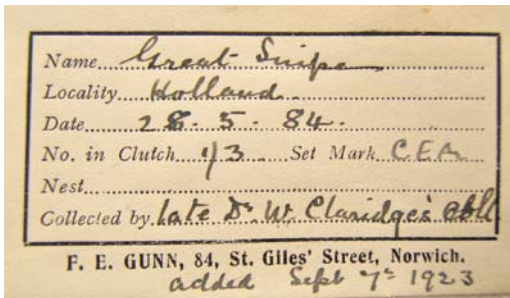 Name Great Snipe
Locality Holland
Date 28. 5. 84.
No. in Clutch 1/3 Set Mark CEA
Nest
Collected by late Dr W. Claridge's Coll
F. E. GUNN, 84, St. Giles' Street, Norwich.
added Sept 7th 1923